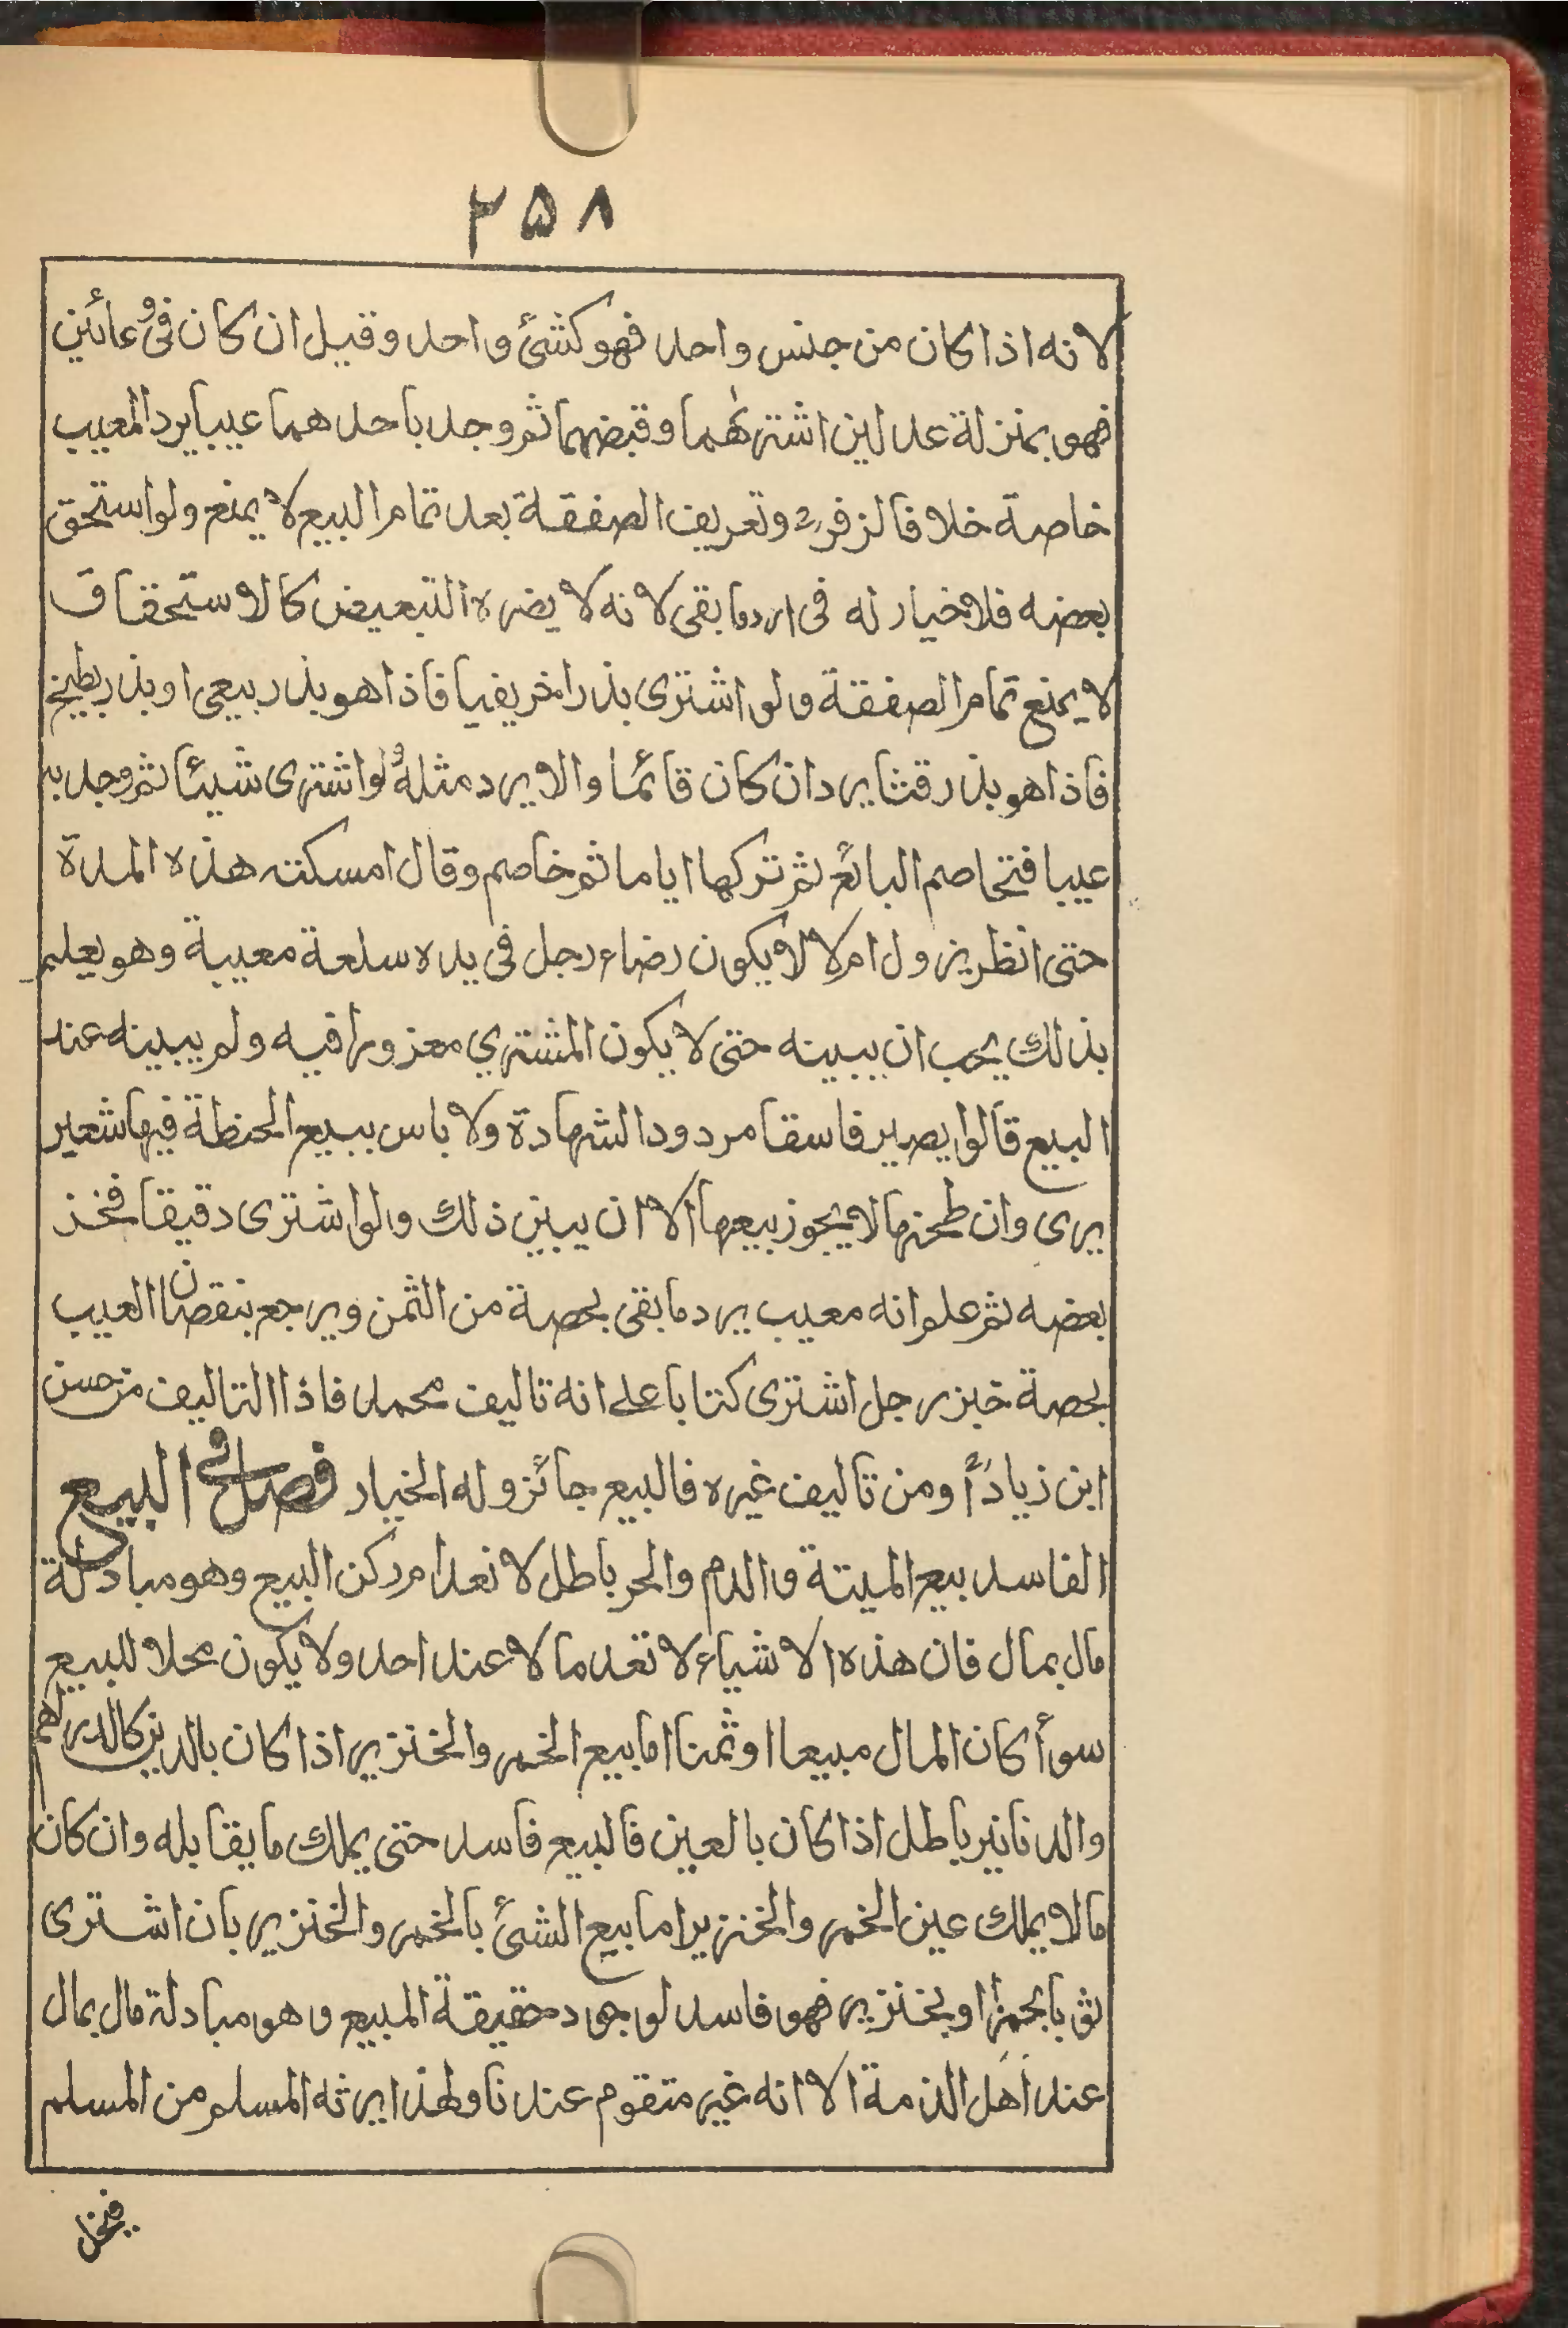 ۲۵۸
لانه اذا كان من جنس واحد فهو كشئ واحد وقيل ان كان فى وعائين
فهو بمنزلة عدلين اشترٰهما وقبضهما ثم وجد باحدهما عيبا يرد المعيب
خاصة خلافا لزفرؒ وتعريف الصفقة بعد تمام البيع لا يمنع ولو استحق
بعضه فلا خيار له فى رد ما بقى لانه لا يضره التبعيض كالاستحقاق
لا يمنع تمام الصفقة ولو اشترى بذرا خريفيا فاذا هو بذر ربيعى او بذر بطيخ
فاذا هو بذر قثا يرد ان كان قائما والا يرد مثله ولو اشترى شيئا ثم وجد به
عيبا فتخاصم البائع ثم تركها اياما ثم خاصم وقال امسكته هذه المدة
حتى انظر يزول ام لا لا يكون رضاء رجل فى يده سلعة معيبة وهو يعلم
بذلك يجب ان يبينه حتى لا يكون المشتري مغرورا فيه ولم يبينه عند
البيع قالوا يصير فاسقا مردود الشهادة ولا باس ببيع الحنطة فيها شعير
يرى وان طحنها لا يجوز بيعها الا ان يبين ذلك والو اشترى دقيقا فخذ
بعضه ثم علو انه معيب يرد ما بقى بحصة من الثمن ويرجع بنقصان العيب
بحصة خبز رجل اشترى كتابا على انه تاليف محمد فاذا التاليف من حسن
ابن زياد أو من تاليف غيره فالبيع جائز وله الخيار فصل فى البيع
الفاسد بيع الميتة والدم والحر باطل لانعدام ركن البيع وهو مبادلة
مال بمال فان هذه الاشياء لا تعد مالا عند احد ولا يكون محلا للبيع
سوأ كان المال مبيعا او ثمنا اما بيع الخمر والخنزير اذا كان بالدين كالدراهم
والدنانير باطل اذا كان بالعين فالبيع فاسد حتى يملك ما يقابله وان كان
مالا يملك عين الخمر والخنزير اما بيع الشئ بالخمر والخنزير بان اشترى
ثوبا بخمر او بخنزير فهو فاسد لوجود حقيقة المبيع وهو مبادلة مال بمال
عند اهل الذمة الا انه غير متقوم عندنا ولهذا يرثه المسلم من المسلم